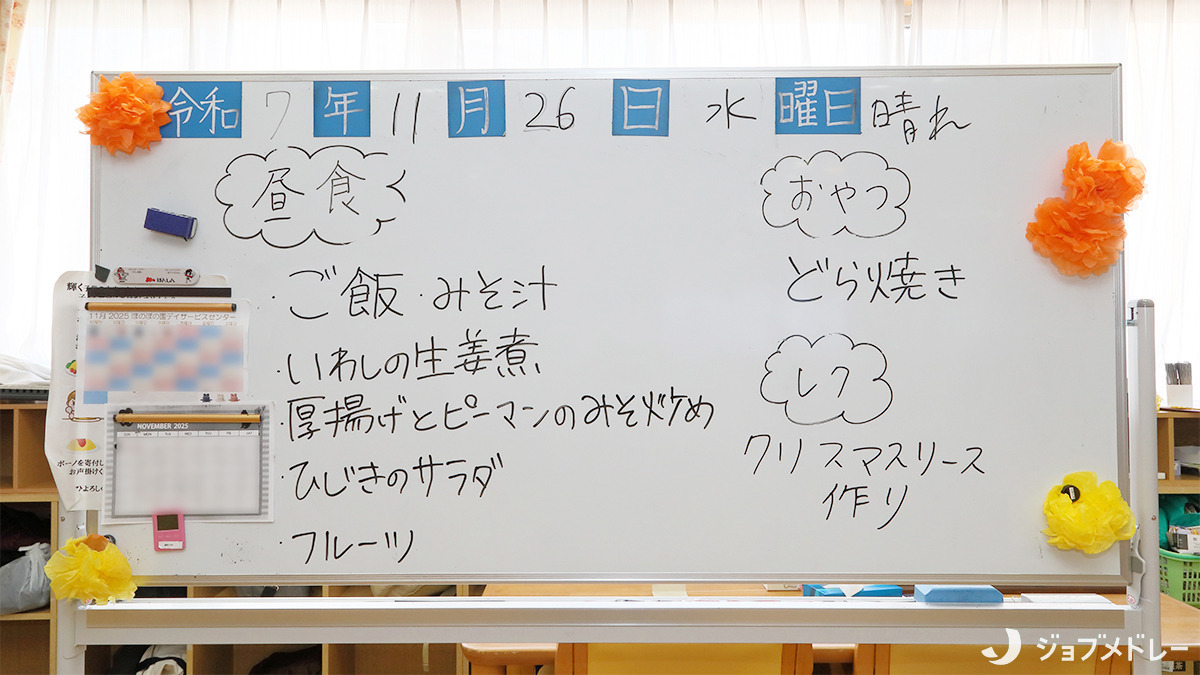 令和 7 年 11 月 26 日 水 曜日 晴れ
昼食
・ご飯・みそ汁
・いわしの生姜煮
・厚揚げとピーマンのみそ炒め
・ひじきのサラダ
・フルーツ
おやつ
どら焼き
レク
クリスマスリース
作り
輝く
11月 2025 ほのぼの園デイサービスセンター
NOVEMBER 2025
SUN MON TUE WED THU FRI SAT
ボーノを寄付し
お声掛けく
ひよろしく
ジョブメドレー